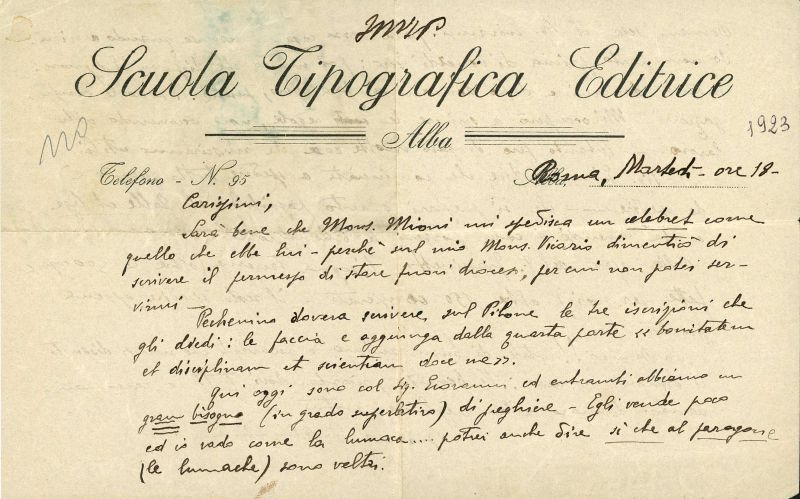 J.M.J.P.
Scuola Tipografica Editrice
Alba
1923
Telefono - N. 95
Roma, Martedì - ore 18 -
Carissimi,
Sarà bene che Mons. Mioni mi spedisca un celebret come
quello che ebbe lui - perchè sul mio Mons. Vicario dimenticò di
scrivere il permesso di stare fuori diocesi, per cui non potei ser-
virmi -
Pechenino doveva scrivere sul Pilone le tre iscrizioni che
gli diedi: le faccia e aggiunga dalla quarta parte « bonitatem
et disciplinam et scientiam doce me ».
Qui oggi sono col Sig. Giovanni ed entrambi abbiamo un
gran bisogno (in grado superlativo) di preghiere - Egli vende poco
ed io vado come la lumaca.... potrei anche dire sì che al paragone
(le lumache) sono veltri.